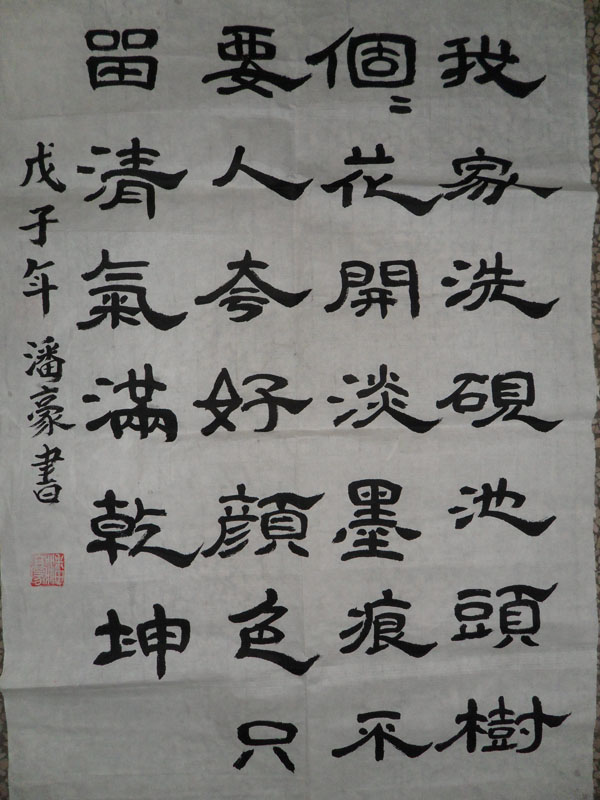 我家洗硯池頭樹
個〻花開淡墨痕不
要人夸好顔色只
留清氣滿乾坤
戊子年潘豪書